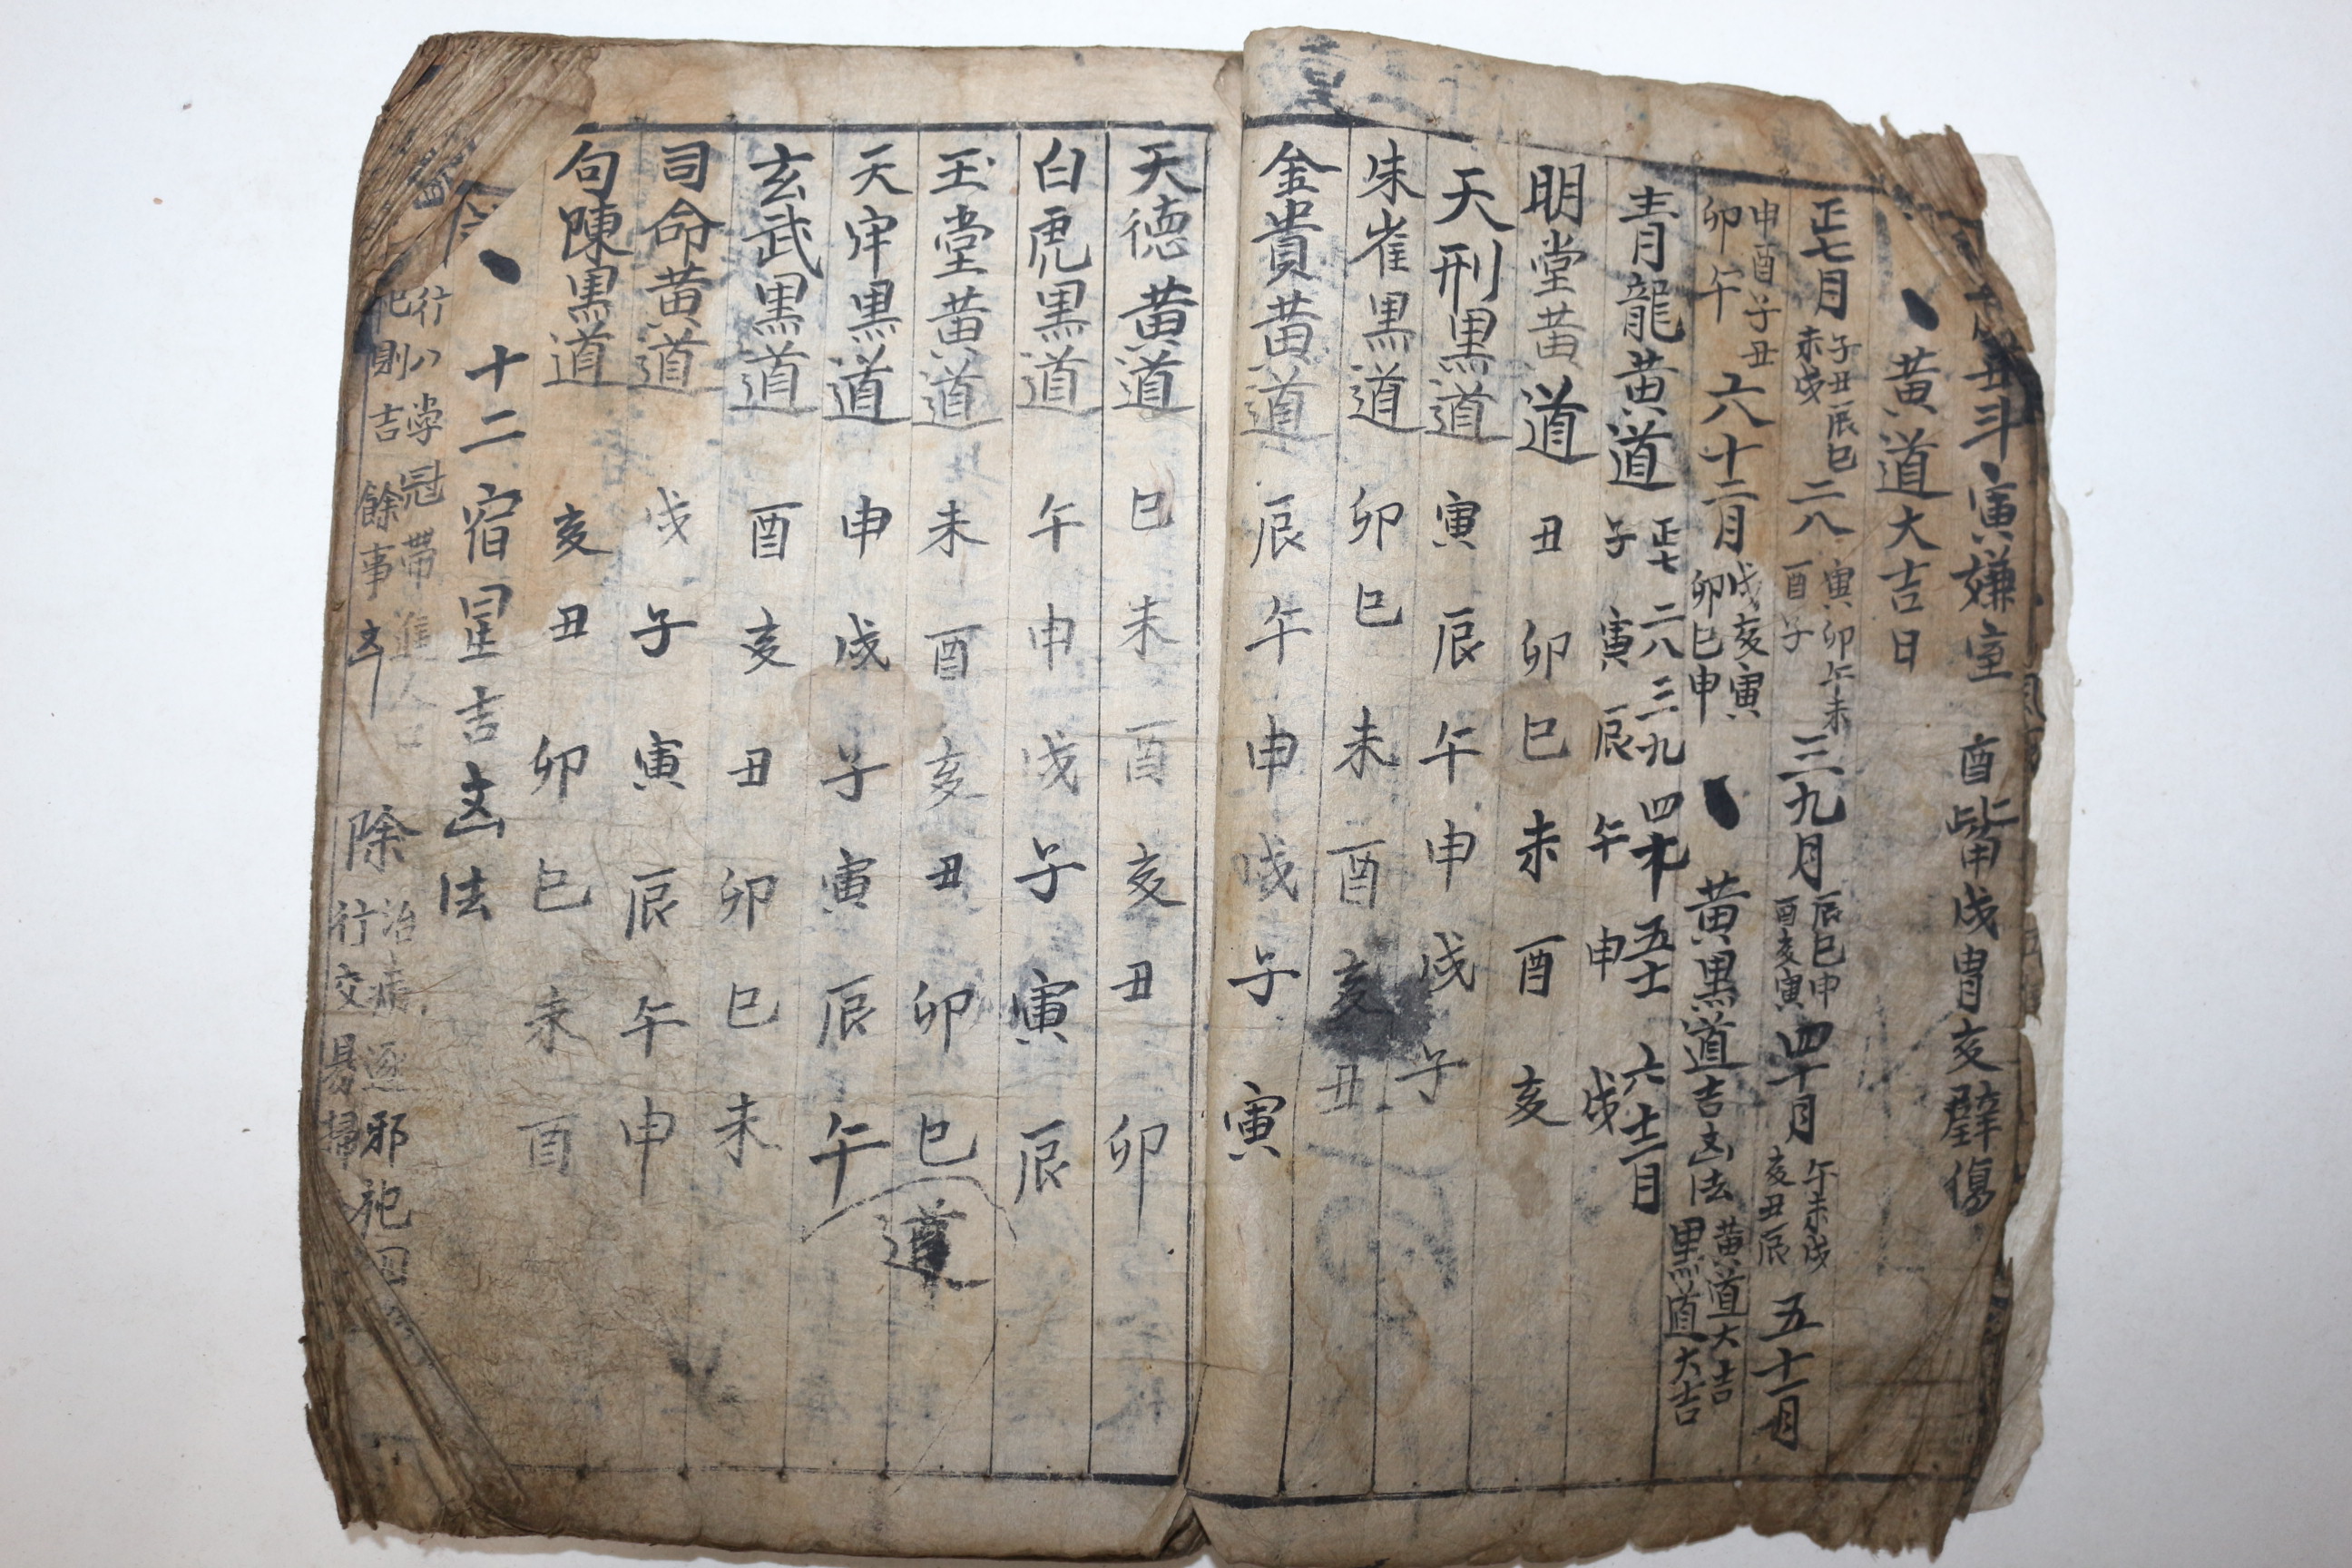 丑斗寅嫌室 酉觜戌胃亥壁傷
黃道大吉日
正七月 子丑辰巳未戌 二八 寅卯午未酉子 三九月 辰巳申酉亥寅 四十月 午未戌亥丑辰 五十一月
申酉子丑卯午 六十二月 戌亥寅卯巳申 黃黑道吉凶法 黃道大吉黑道大吉
青龍黃道 正七子 二八寅 三九辰 四十午 五十一申 六十二月戌
明堂黃道 丑 卯 巳 未 酉 亥
天刑黑道 寅 辰 午 申 戌 子
朱崔黑道 卯 巳 未 酉 亥 丑
金貴黃道 辰 午 申 戌 子 寅
天德黃道 巳 未 酉 亥 丑 卯
白虎黑道 午 申 戌 子 寅 辰
玉堂黃道 未 酉 亥 丑 卯 巳 道
天牢黑道 申 戌 子 寅 辰 午
玄武黑道 酉 亥 丑 卯 巳 未
司命黃道 戌 子 寅 辰 午 申
句陳黑道 亥 丑 卯 巳 未 酉
十二宿星吉凶法
行 八 學冠帶進人口
祀則吉餘事凶 除 治病逐邪祀
行交易掃